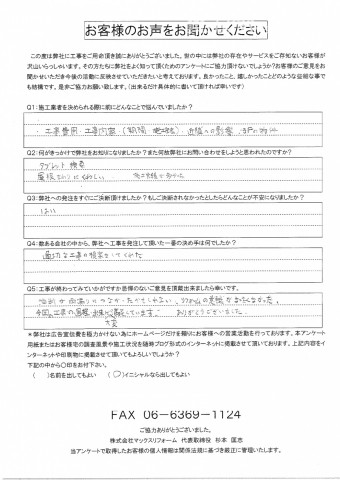 お客様のお声をお聞かせください
この度は弊社に工事をご用命頂き誠にありがとうございました。世の中には弊社の存在やサービスをご存知ないお客様が
沢山いらっしゃいます。その方たちに弊社をよく知って頂くためのアンケートにご協力頂けないでしょうか？お客様のご意見をお
聞かせいただき今後の活動に反映させていただきたいと考えております。良かったこと、嬉しかったことどのような些細な事で
も結構です。是非ご協力お願い致します。（出来るだけ具体的に書いて頂ければ幸いです）
Q1：施工業者を決められる際に前にどんなことで悩んでいましたか？
・工事費用・工事内容
Q2：何がきっかけで弊社をお知りになりましたか？また何故弊社にお問い合わせをしようと思われたのですか？
タブレット 検索
Q3：弊社への発注をすぐにご決断頂けましたか？もしご決断されなかったとしたらどんなことが不安になりましたか？
はい
Q4：数ある会社の中から、弊社へ工事を発注して頂いた一番の決め手は何でしたか？
適切な工事の提案をしてくれた
Q5：工事が終わってみていかがですか忌憚のないご意見を頂戴出来ましたら幸いです。
ありがとうございました。
＊弊社は広告宣伝費を極力かけない為にホームページだけを頼りにお客様への営業活動を行っております。本アンケート
用紙またはお客様宅の調査風景や施工状況を随時ブログ形式のインターネットに掲載させて頂いております。上記内容をイ
ンターネットや印刷物に掲載させて頂いてもよろしいでしょうか？
下記の中から〇印をお付け下さい。
（　）名前を出してもよい　（〇）イニシャルなら出してもよい
FAX 06-6369-1124
ご協力ありがとうございました。
株式会社マックスリフォーム 代表取締役 杉本 匡志
当アンケートで取得したお客様の個人情報は関係法規に基づき厳正に管理いたします。